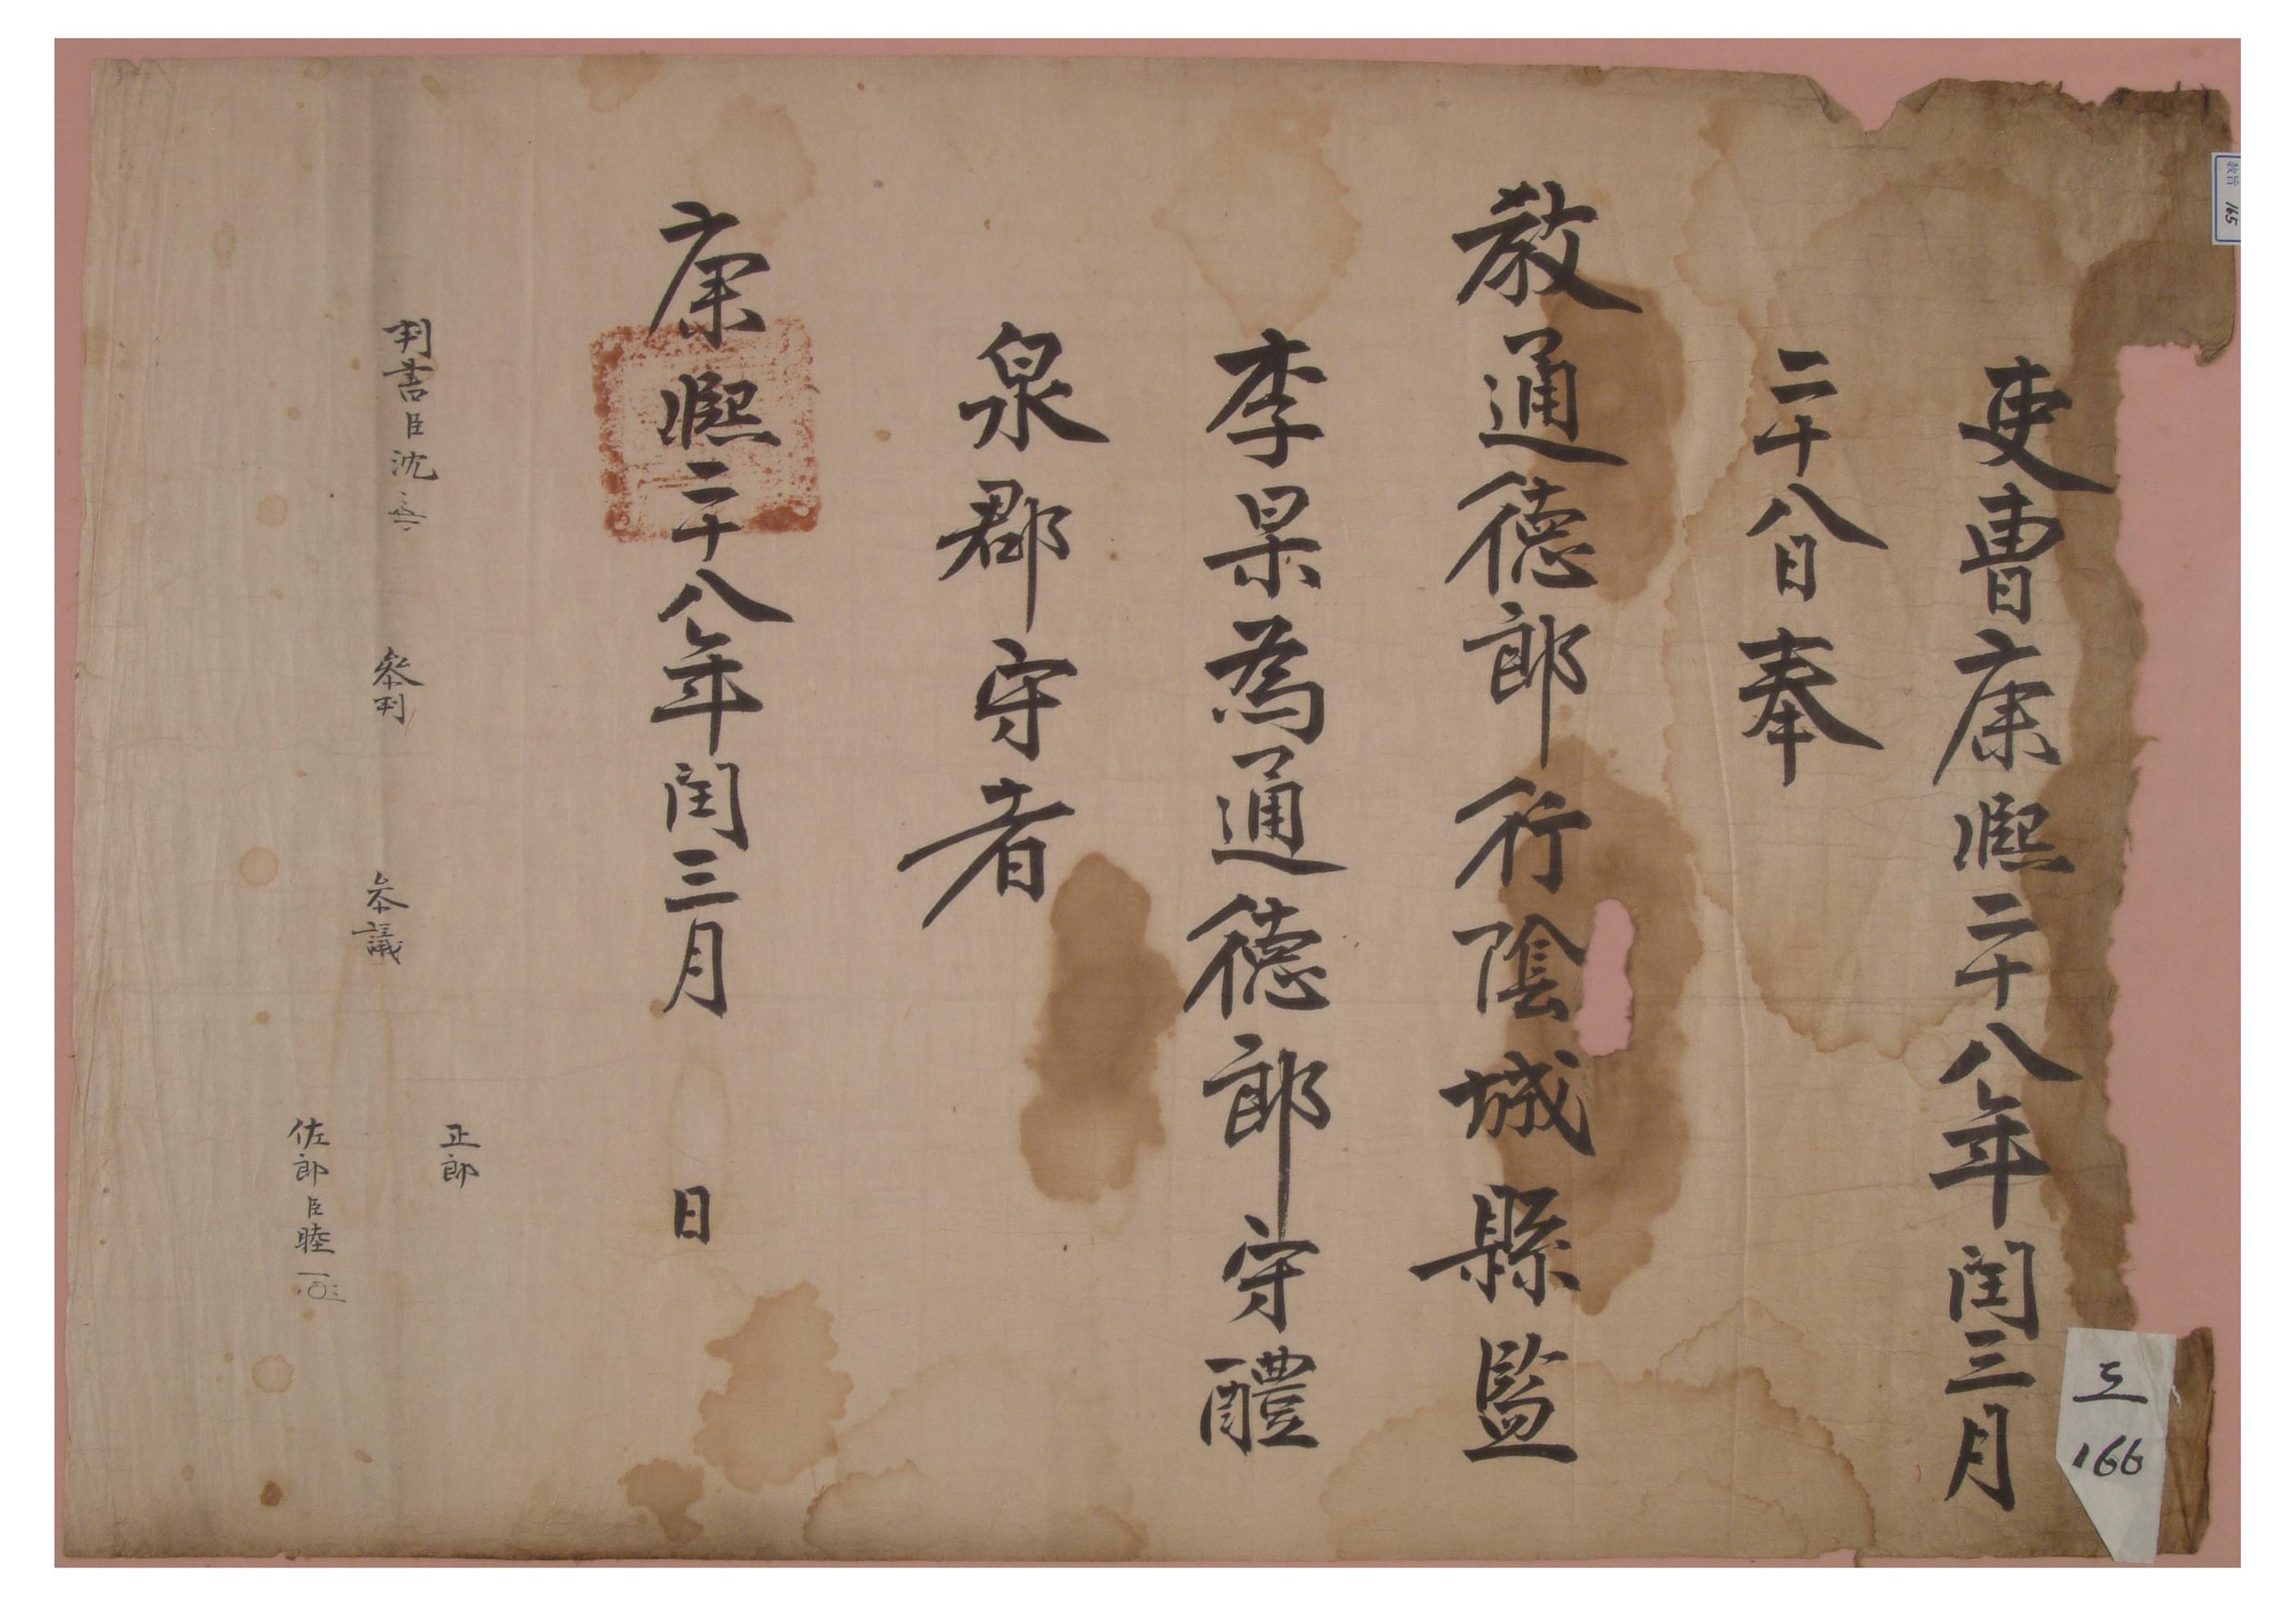 吏曹康熙二十八年閏三月
二十八日奉
教通德郎行陰城縣監
李杲爲通德郎守醴
泉郡守者
康熙二十八年閏三月 日
判書臣沈
參判
參議
正郎
佐郎臣睦
教旨 165
166